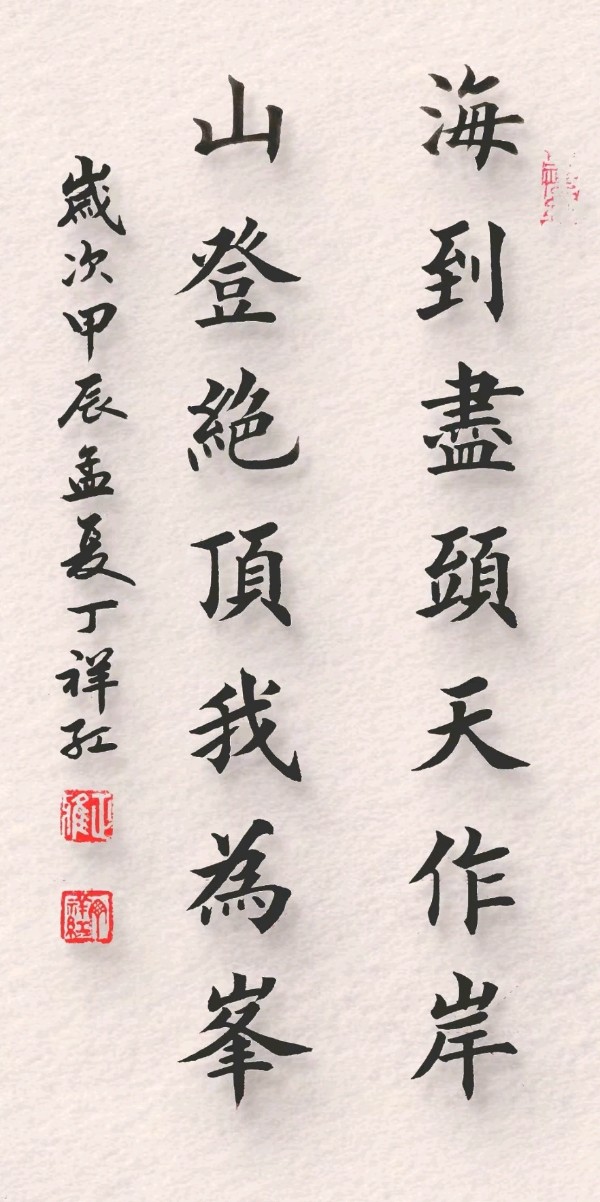 海到盡頭天作岸
山登絶頂我為峯
歲次甲辰孟夏丁祥红